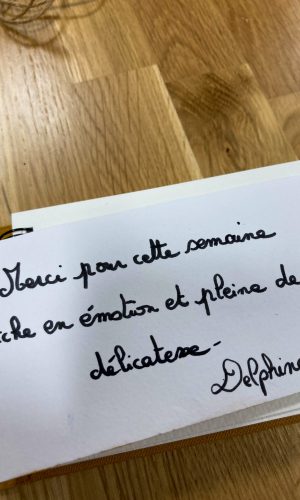 Merci pour cette semaine
riche en émotion et pleine de
délicatesse -
Delphine